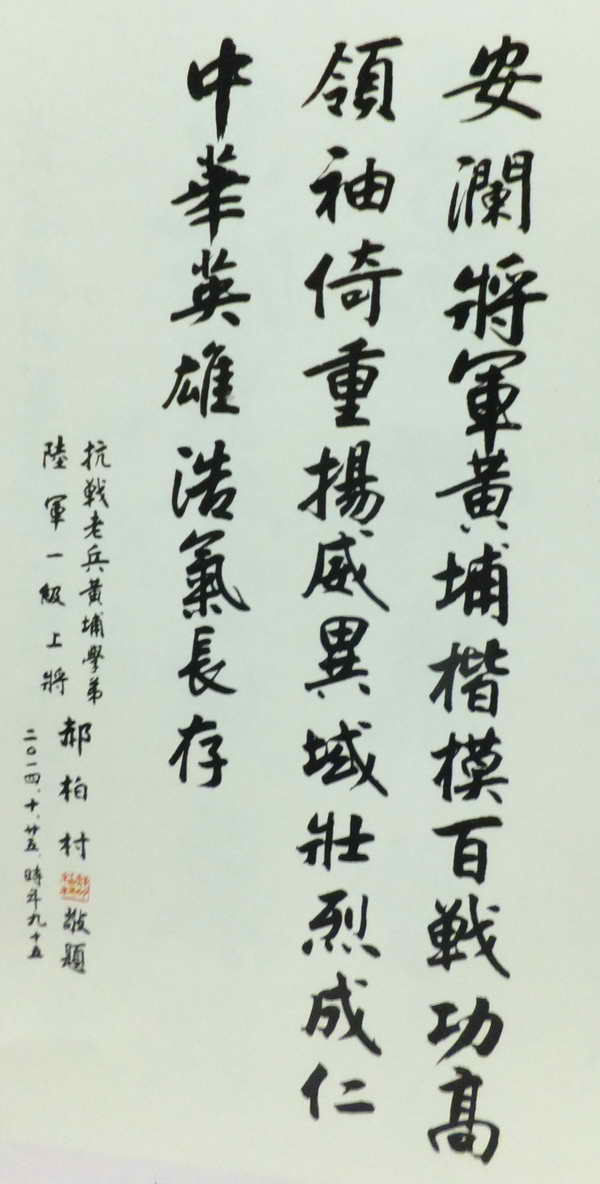 安瀾將軍黃埔楷模百戰功高
領袖倚重揚威異域壯烈成仁
中華英雄浩氣長存
抗戰老兵黃埔學弟
陸軍一級上將
郝柏村敬題
二〇一四、十、廿五、時年九十五